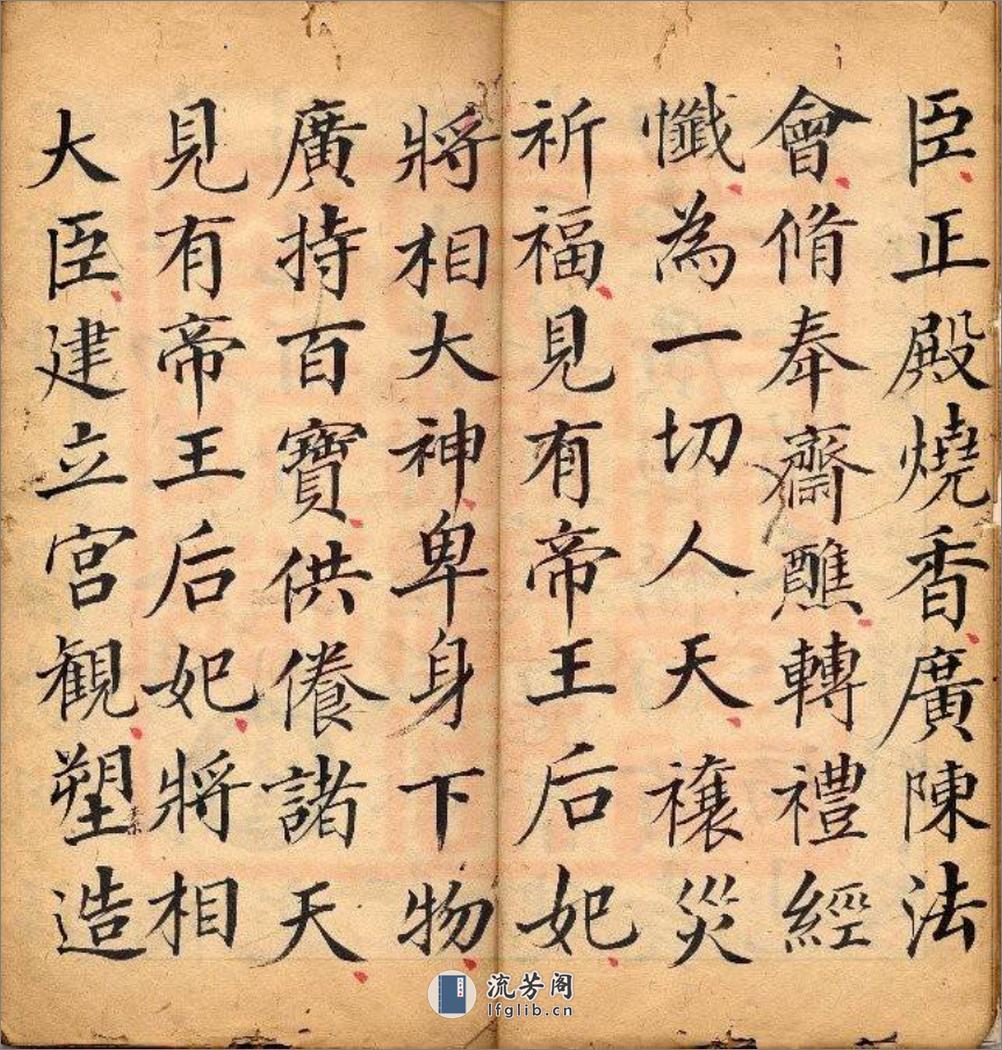 臣正殿燒香廣陳法
會脩奉齋醮轉禮經
懺為一切人天禳災
祈福見有帝王后妃
將相大神卑身下物
廣持百寶供養諸天
見有帝王后妃將相
大臣建立宮觀塑造
流芳阁
lfglib.cn